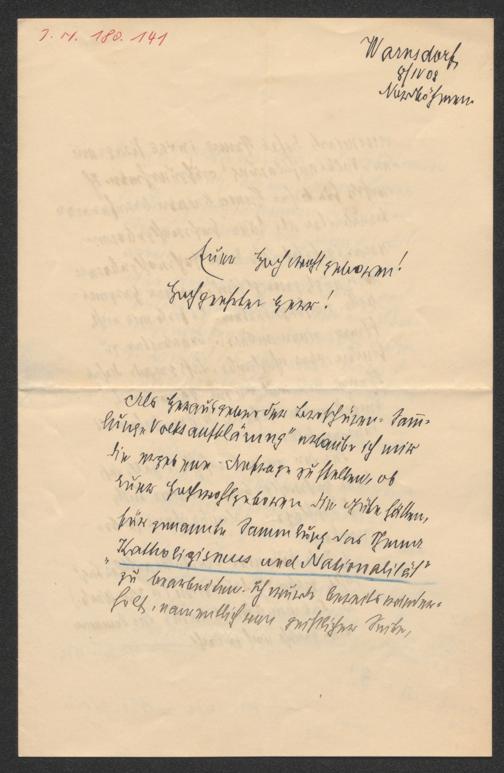 J. N. 180.141
Warnsdorf,
8/IV 08
Nordböhmen
Euer Hochwohlgeboren!
Hochgeehrter Herr!
Als Herausgeber der Broschüren-Samm-
lung "Volksaufklärung" erlaube ich mir
die ergebene Anfrage zu stellen, ob
Euer Hochwohlgeboren die Güte hätten,
für genannte Sammlung das Thema
"Katholizismus und Nationalität"
zu bearbeiten. Ich wurde bereits wieder-
holt, namentlich von geistlicher Seite,